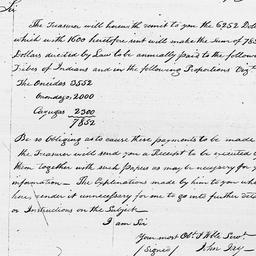 Sir
The Treasurer will herewith remit to you the 6252 Doll
which with 1600 heretofore sent will make the Sum of 785
Dollars directed by Law to be annually paid to the follow
Tribes of Indians and in the following Proportions Viz
The Oneidas 3552
Onondago, 2000
Cayugas 2300
7852
Be so Obliging as to cause these payments to be made
the Treasurer will send you a Receipt to be executed
them together with such papers as may be necessary for y
information — The Explanations made by him to you whe
here, render it unnecessary for me to go into further deta
or Instructions on the Subject —
I am Sir
Your most Obt & Hble Servt
(Signed) John Jay —